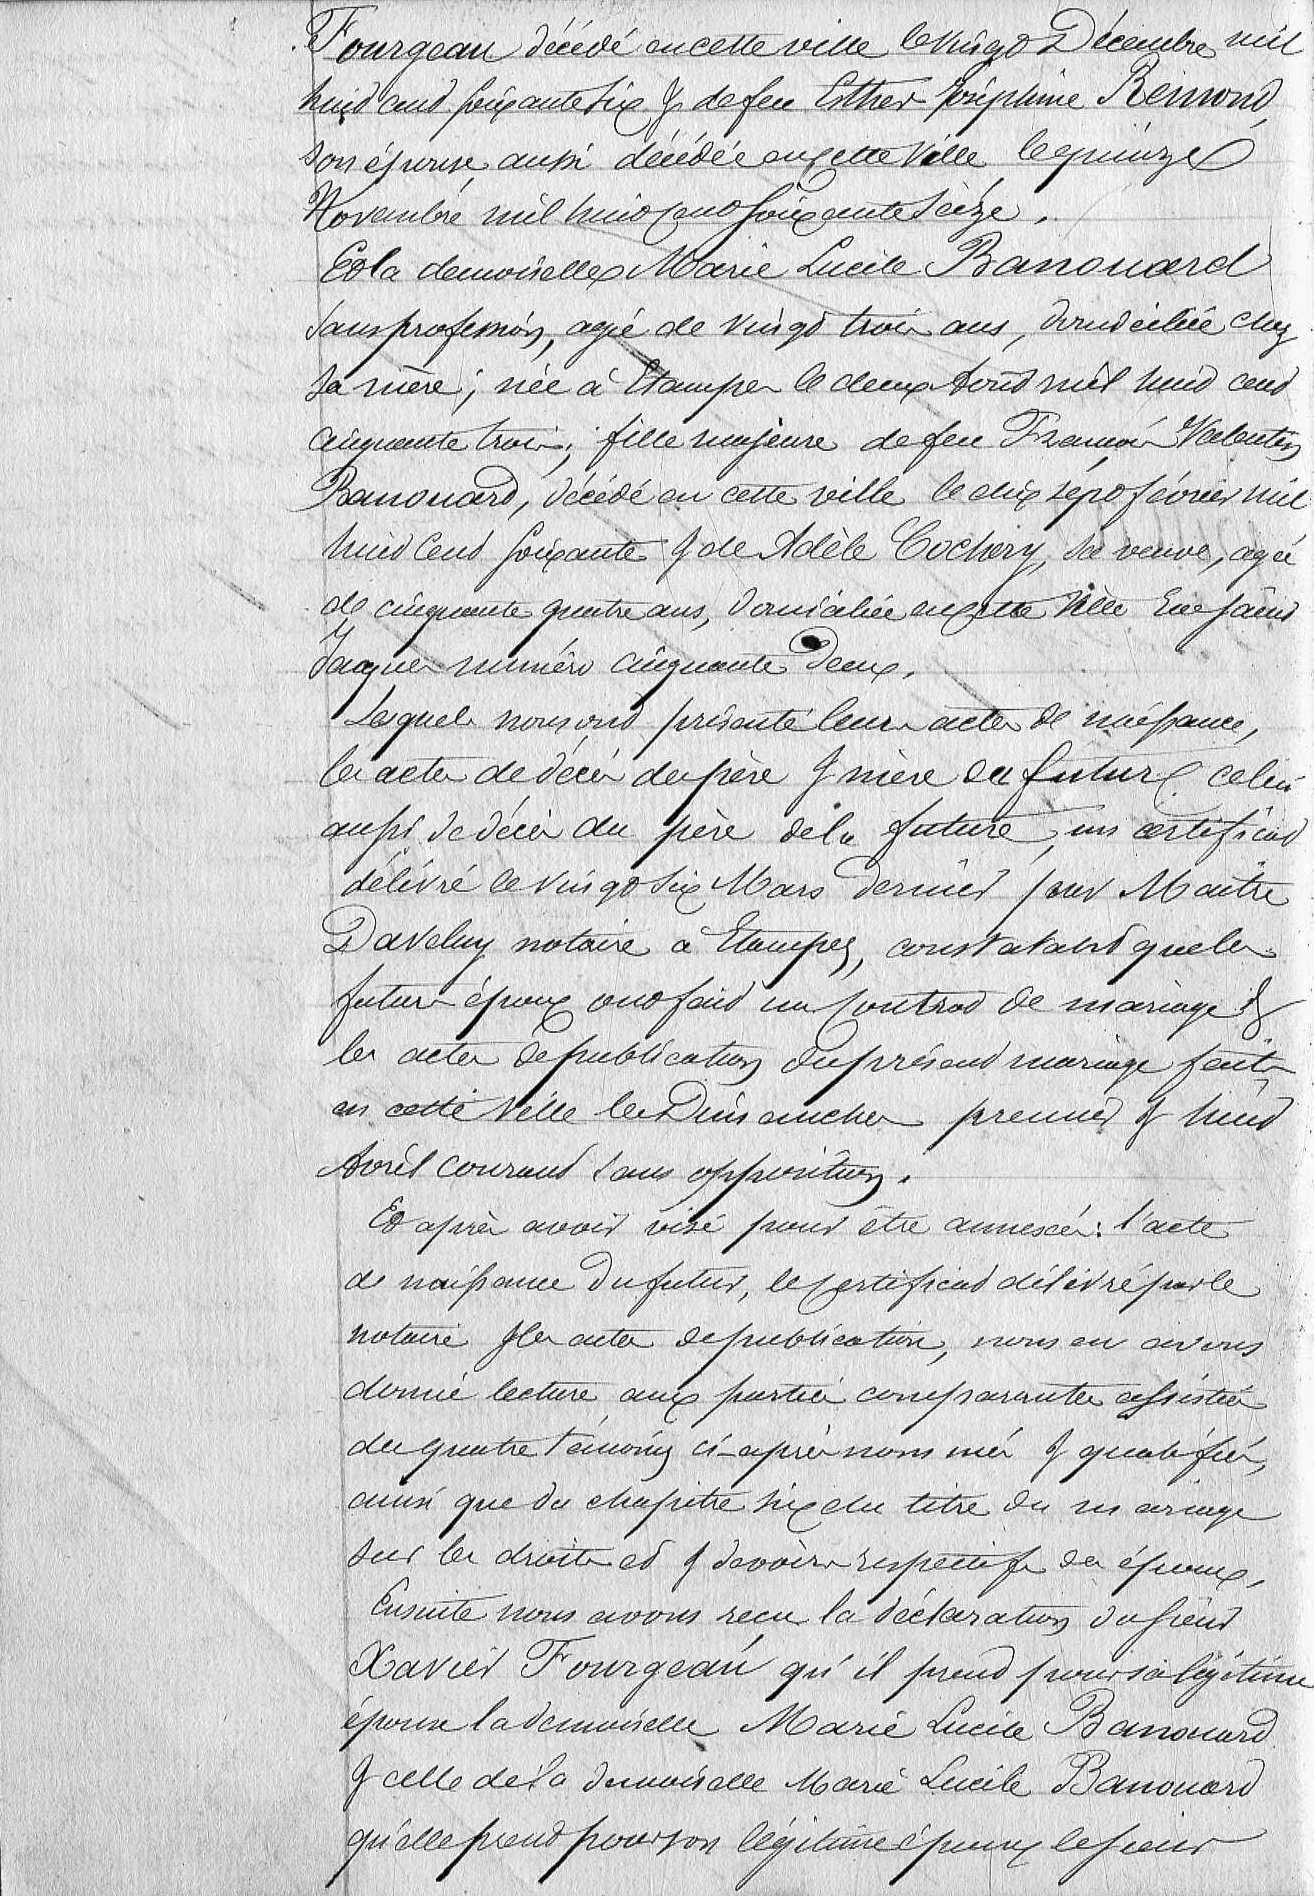 Fourgeau décédé en cette ville le vingt Décembre mil
huit cent soixante six & de feu Esther Joséphine Rémond,
son épouse, aussi décédée en cette ville le quinze
Novembre mil huit cent soixante seize.
Et la demoiselle Marie Lucile Banouard
sans profession, agée de vingt trois ans, domiciliée chez
sa mère; née à Etampes le deux Août mil huit cent
cinquante trois; fille majeure de feu François Valentin
Banouard, décédé en cette ville le dix sept février mil
huit cent soixante & de Adèle Cochery, sa veuve, agée
de cinquante quatre ans, domiciliée en cette ville rue Saint
Jacques numéro cinquante deux.
Lesquels nous ont présenté leurs actes de naissance,
les actes de décès des père & mère du futur, celui
aussi de décès du père de la future, un certificat
délivré le vingt six Mars dernier par Maître
Daveluy notaire à Etampes, constatant que les
futurs époux ont fait un contrat de mariage &
les actes de publication du présent mariage faits
en cette ville les Dimanches premier & huit
Avril courant sans opposition.
Et après avoir visé pour être annexés: l'acte
de naissance du futur, le certificat délivré par le
notaire & les actes de publication, nous en avons
donné lecture aux parties comparantes assistées
des quatre témoins ci-après nommés & qualifiés,
ainsi que du chapitre six du titre du mariage
sur les droits et & devoirs respectifs des époux.
Ensuite nous avons reçu la déclaration du sieur
Xavier Fourgeau qu'il prend pour sa légitime
épouse la demoiselle Marie Lucile Banouard
& celle de la demoiselle Marie Lucile Banouard
qu'elle prend pour son légitime époux le sieur